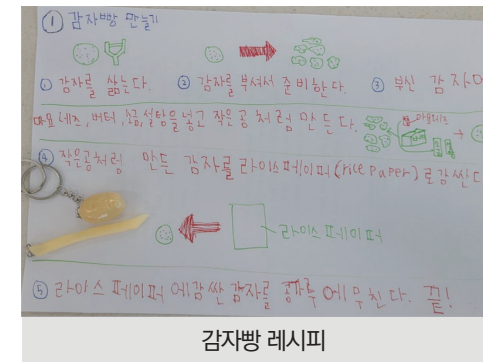 ① 감자빵 만들기
① 감자를 삶는다. ② 감자를 부셔서 준비한다. ③ 부신 감자에
마요네즈, 버터, 소금, 설탕을 넣고 작은공처럼 만든다.
마요네즈
④ 작은공처럼 만든 감자를 라이스페이퍼(rice paper)로 감싼다
라이스 페이퍼
⑤ 라이스 페이퍼에 감싼 감자를 콩가루에 무친다. 끝!
감자빵 레시피